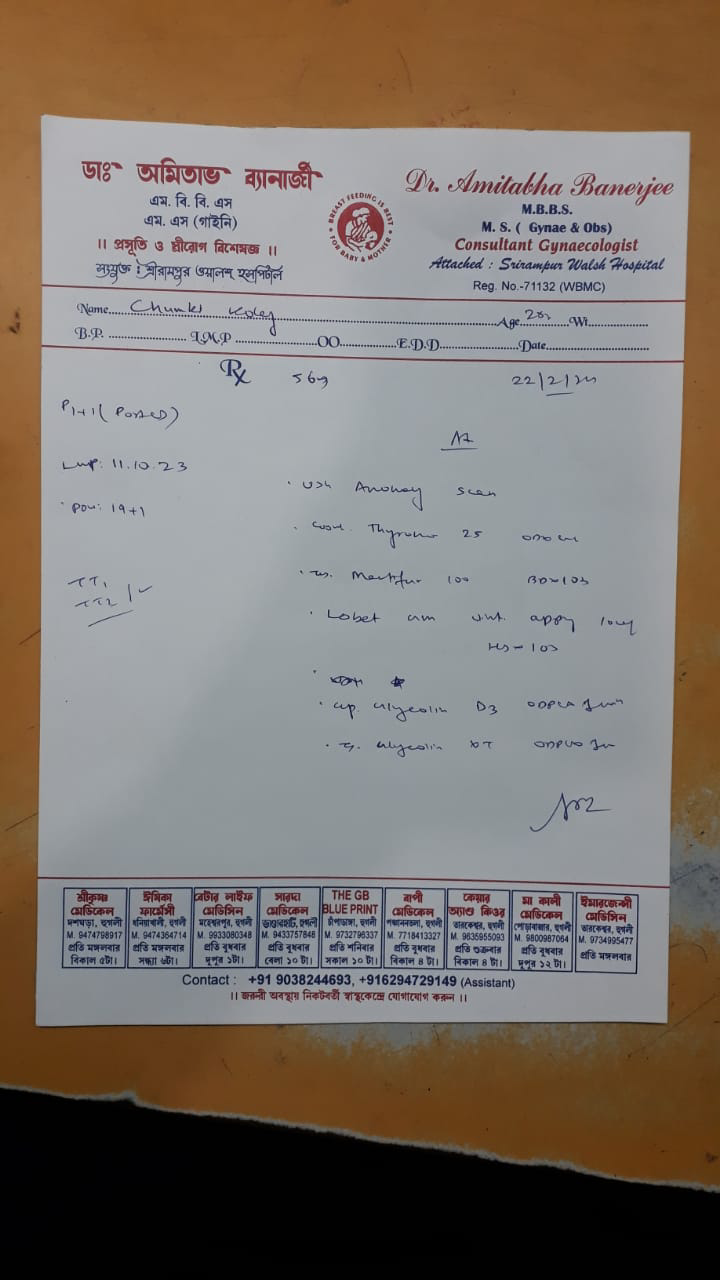 ডাঃ অমিতাভ ব্যানার্জী
এম. বি. বি. এস
এম. এস (গাইনি)
।। প্রসূতি ও স্ত্রীরোগ বিশেষজ্ঞ ।।
সংযুক্ত : শ্রীরামপুর ওয়ালশ হসপিটাল
BREAST FEEDING IS BEST
FOR BABY & MOTHER
Dr. Amitabha Banerjee
M.B.B.S.
M. S. ( Gynae & Obs)
Consultant Gynaecologist
Attached : Srirampur Walsh Hospital
Reg. No.-71132 (WBMC)
Name. Chumki Koley Age 28 Wt.
B.P. L.M.P OO. E.D.D. Date
Rx 56 22/2/24
P1+1
LMP: 11.10.23
POG: 19+1
TT1
TT2
USG Anomaly scan
25
100 BD
Lobet apply
HS
cap. D3
T.
শ্রীকৃষ্ণ মেডিকেল
দশঘড়া, হুগলী
M. 9474798917
প্রতি মঙ্গলবার
বিকাল ৫টা।
ঈষিকা ফার্মেসী
ধনিয়াখালী, হুগলী
M. 9474364714
প্রতি মঙ্গলবার
সন্ধ্যা ৬টা।
বেটার লাইফ মেডিসিন
মহেশ্বরপুর, হুগলী
M. 9933080348
প্রতি বুধবার
দুপুর ১টা।
সারদা মেডিকেল
হুগলী
M. 9433757846
প্রতি বুধবার
বেলা ১০ টা।
THE GB BLUE PRINT
চাঁপাডাঙ্গা, হুগলী
M. 9732796337
প্রতি শনিবার
সকাল ১০ টা।
বাপী মেডিকেল
হুগলী
M. 7718413327
প্রতি বুধবার
বিকাল ৪ টা।
কেয়ার অ্যান্ড কিওর
তারকেশ্বর, হুগলী
M. 9635955093
প্রতি শুক্রবার
বিকাল ৪ টা।
মা কালী মেডিকেল
পোড়াবাজার, হুগলী
M. 9800987064
প্রতি বুধবার
দুপুর ১২ টা।
ইমারজেন্সী মেডিসিন
তারকেশ্বর, হুগলী
M. 9734995477
প্রতি মঙ্গলবার
Contact : +91 9038244693, +916294729149 (Assistant)
।। জরুরী অবস্থায় নিকটবর্তী স্বাস্থ্যকেন্দ্রে যোগাযোগ করুন ।।